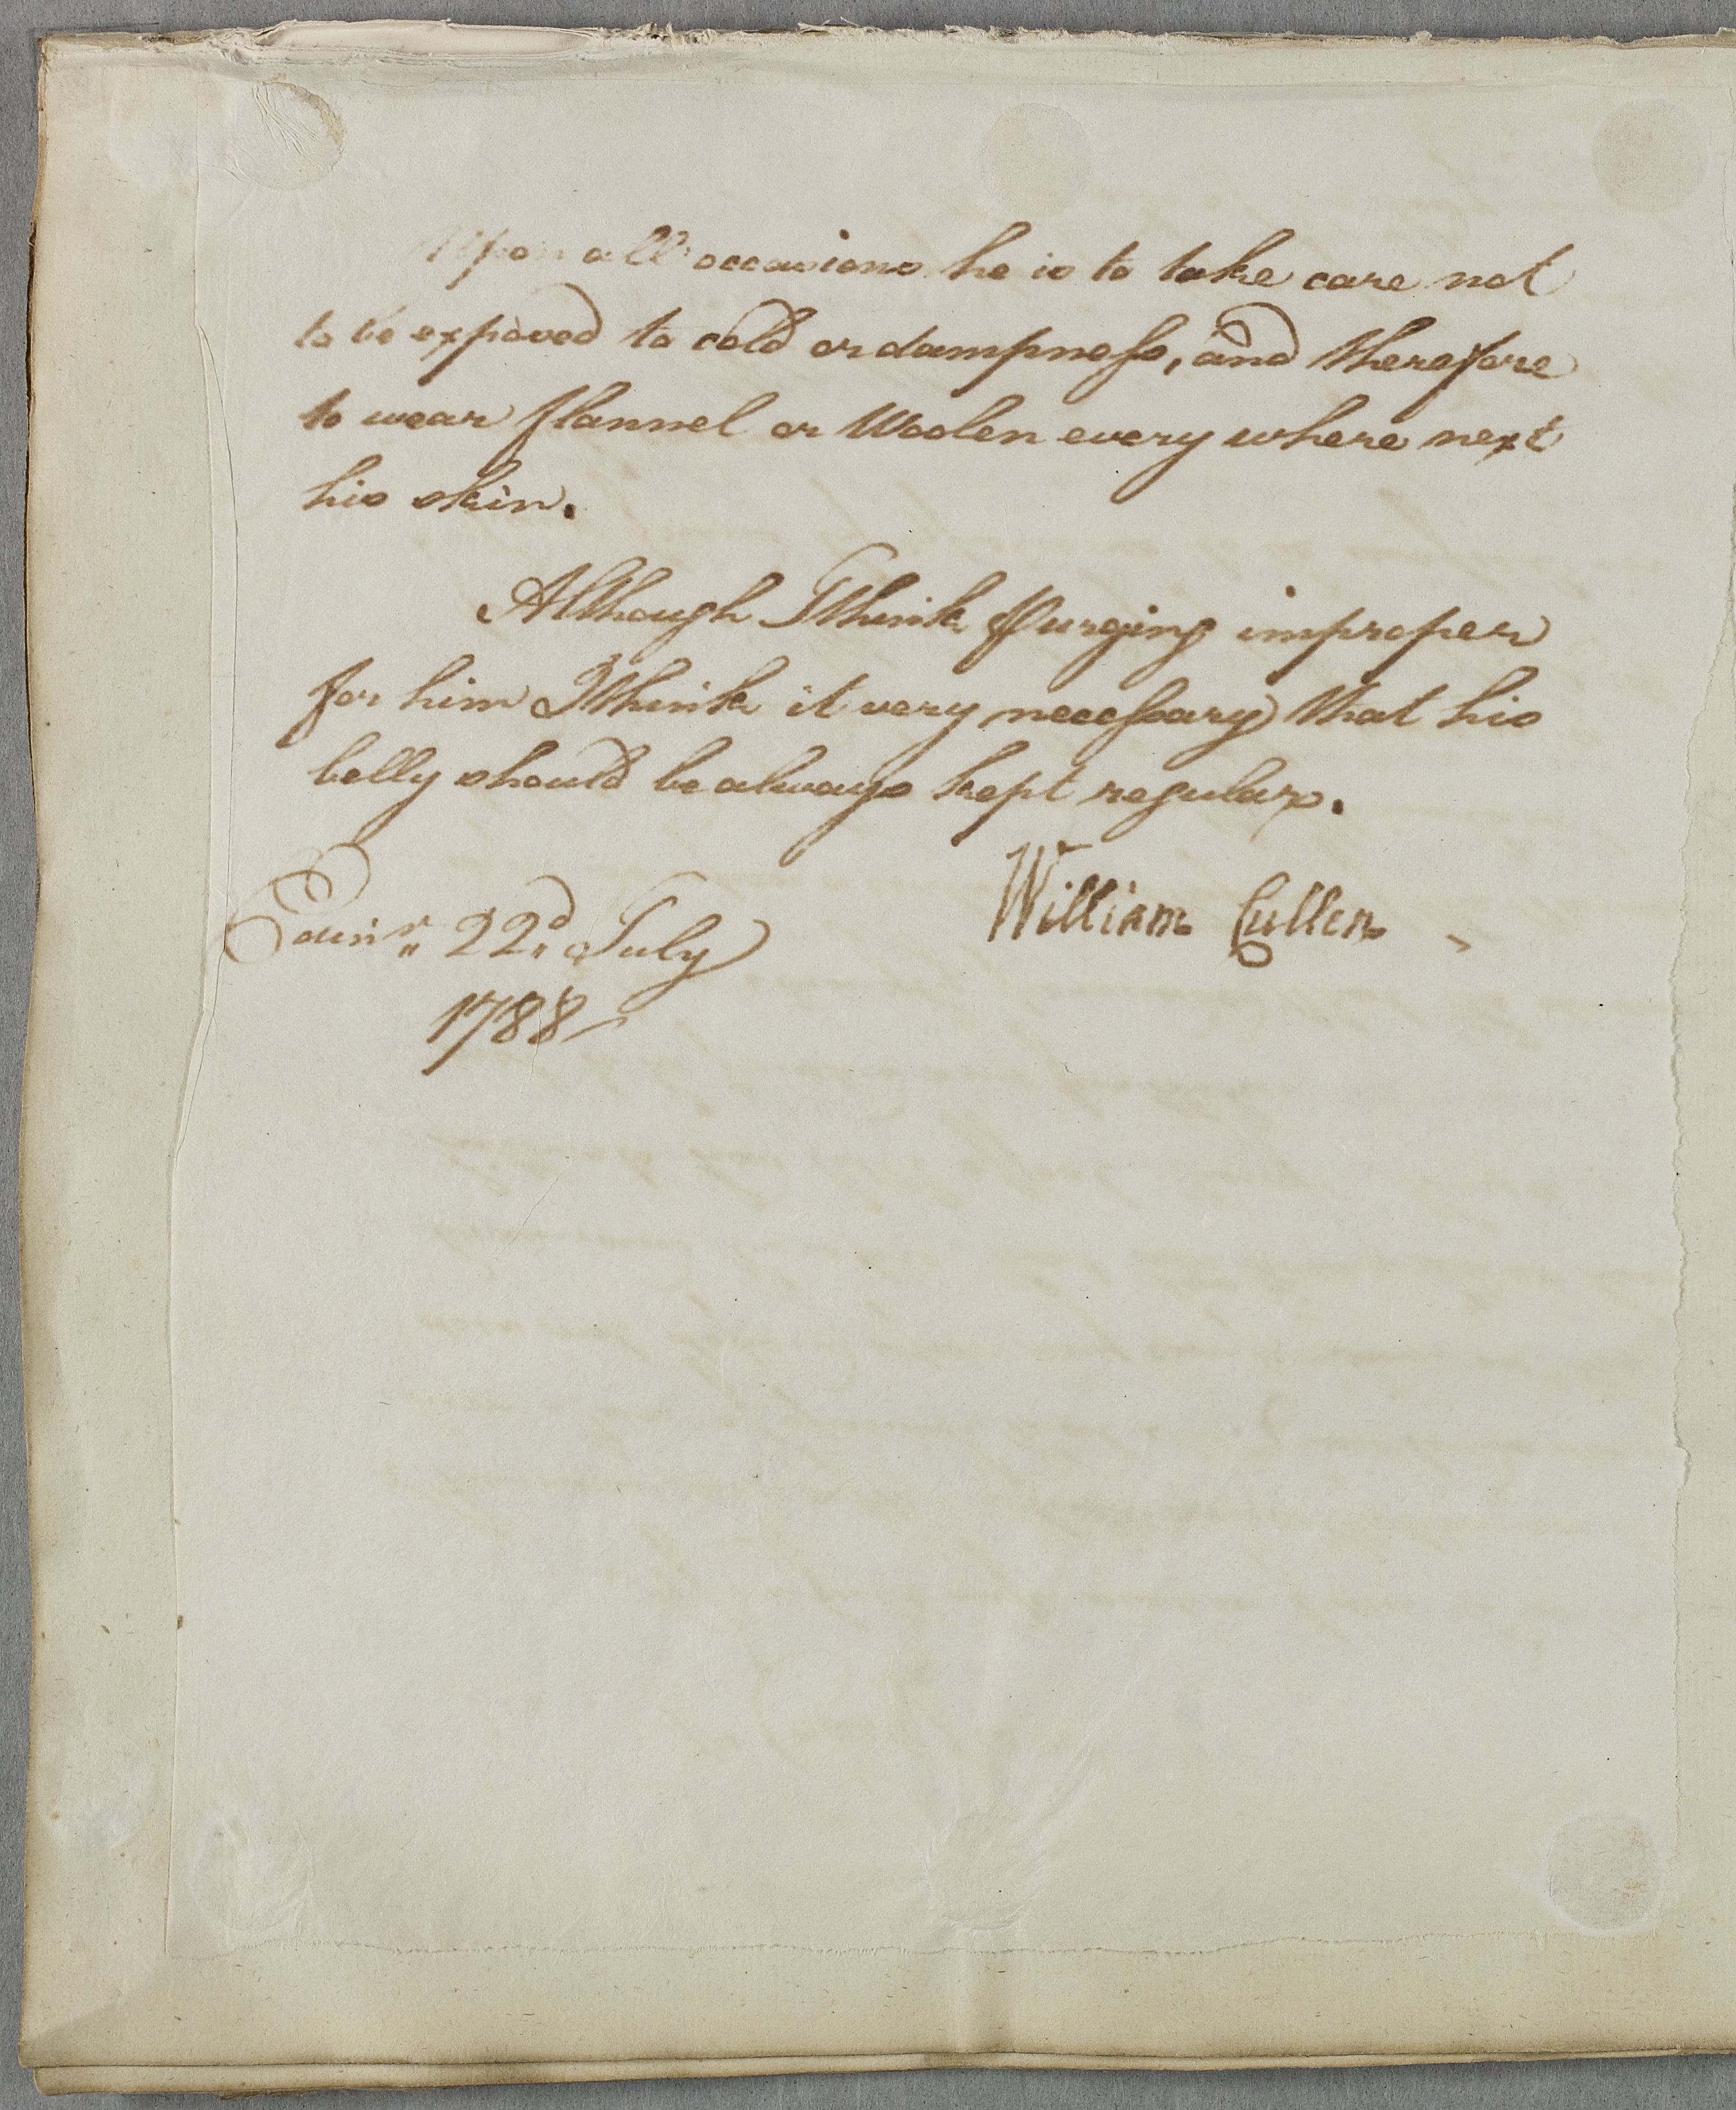 Upon all occasions he is to take care not
to be exposed to cold or dampness, and therefore
to wear flannel or Woolen every where next
his skin.
Although I think Purging improper
for him I think it very necessary that his
belly should be always kept regular.
William Cullen
Edinr. 22d. July
1788